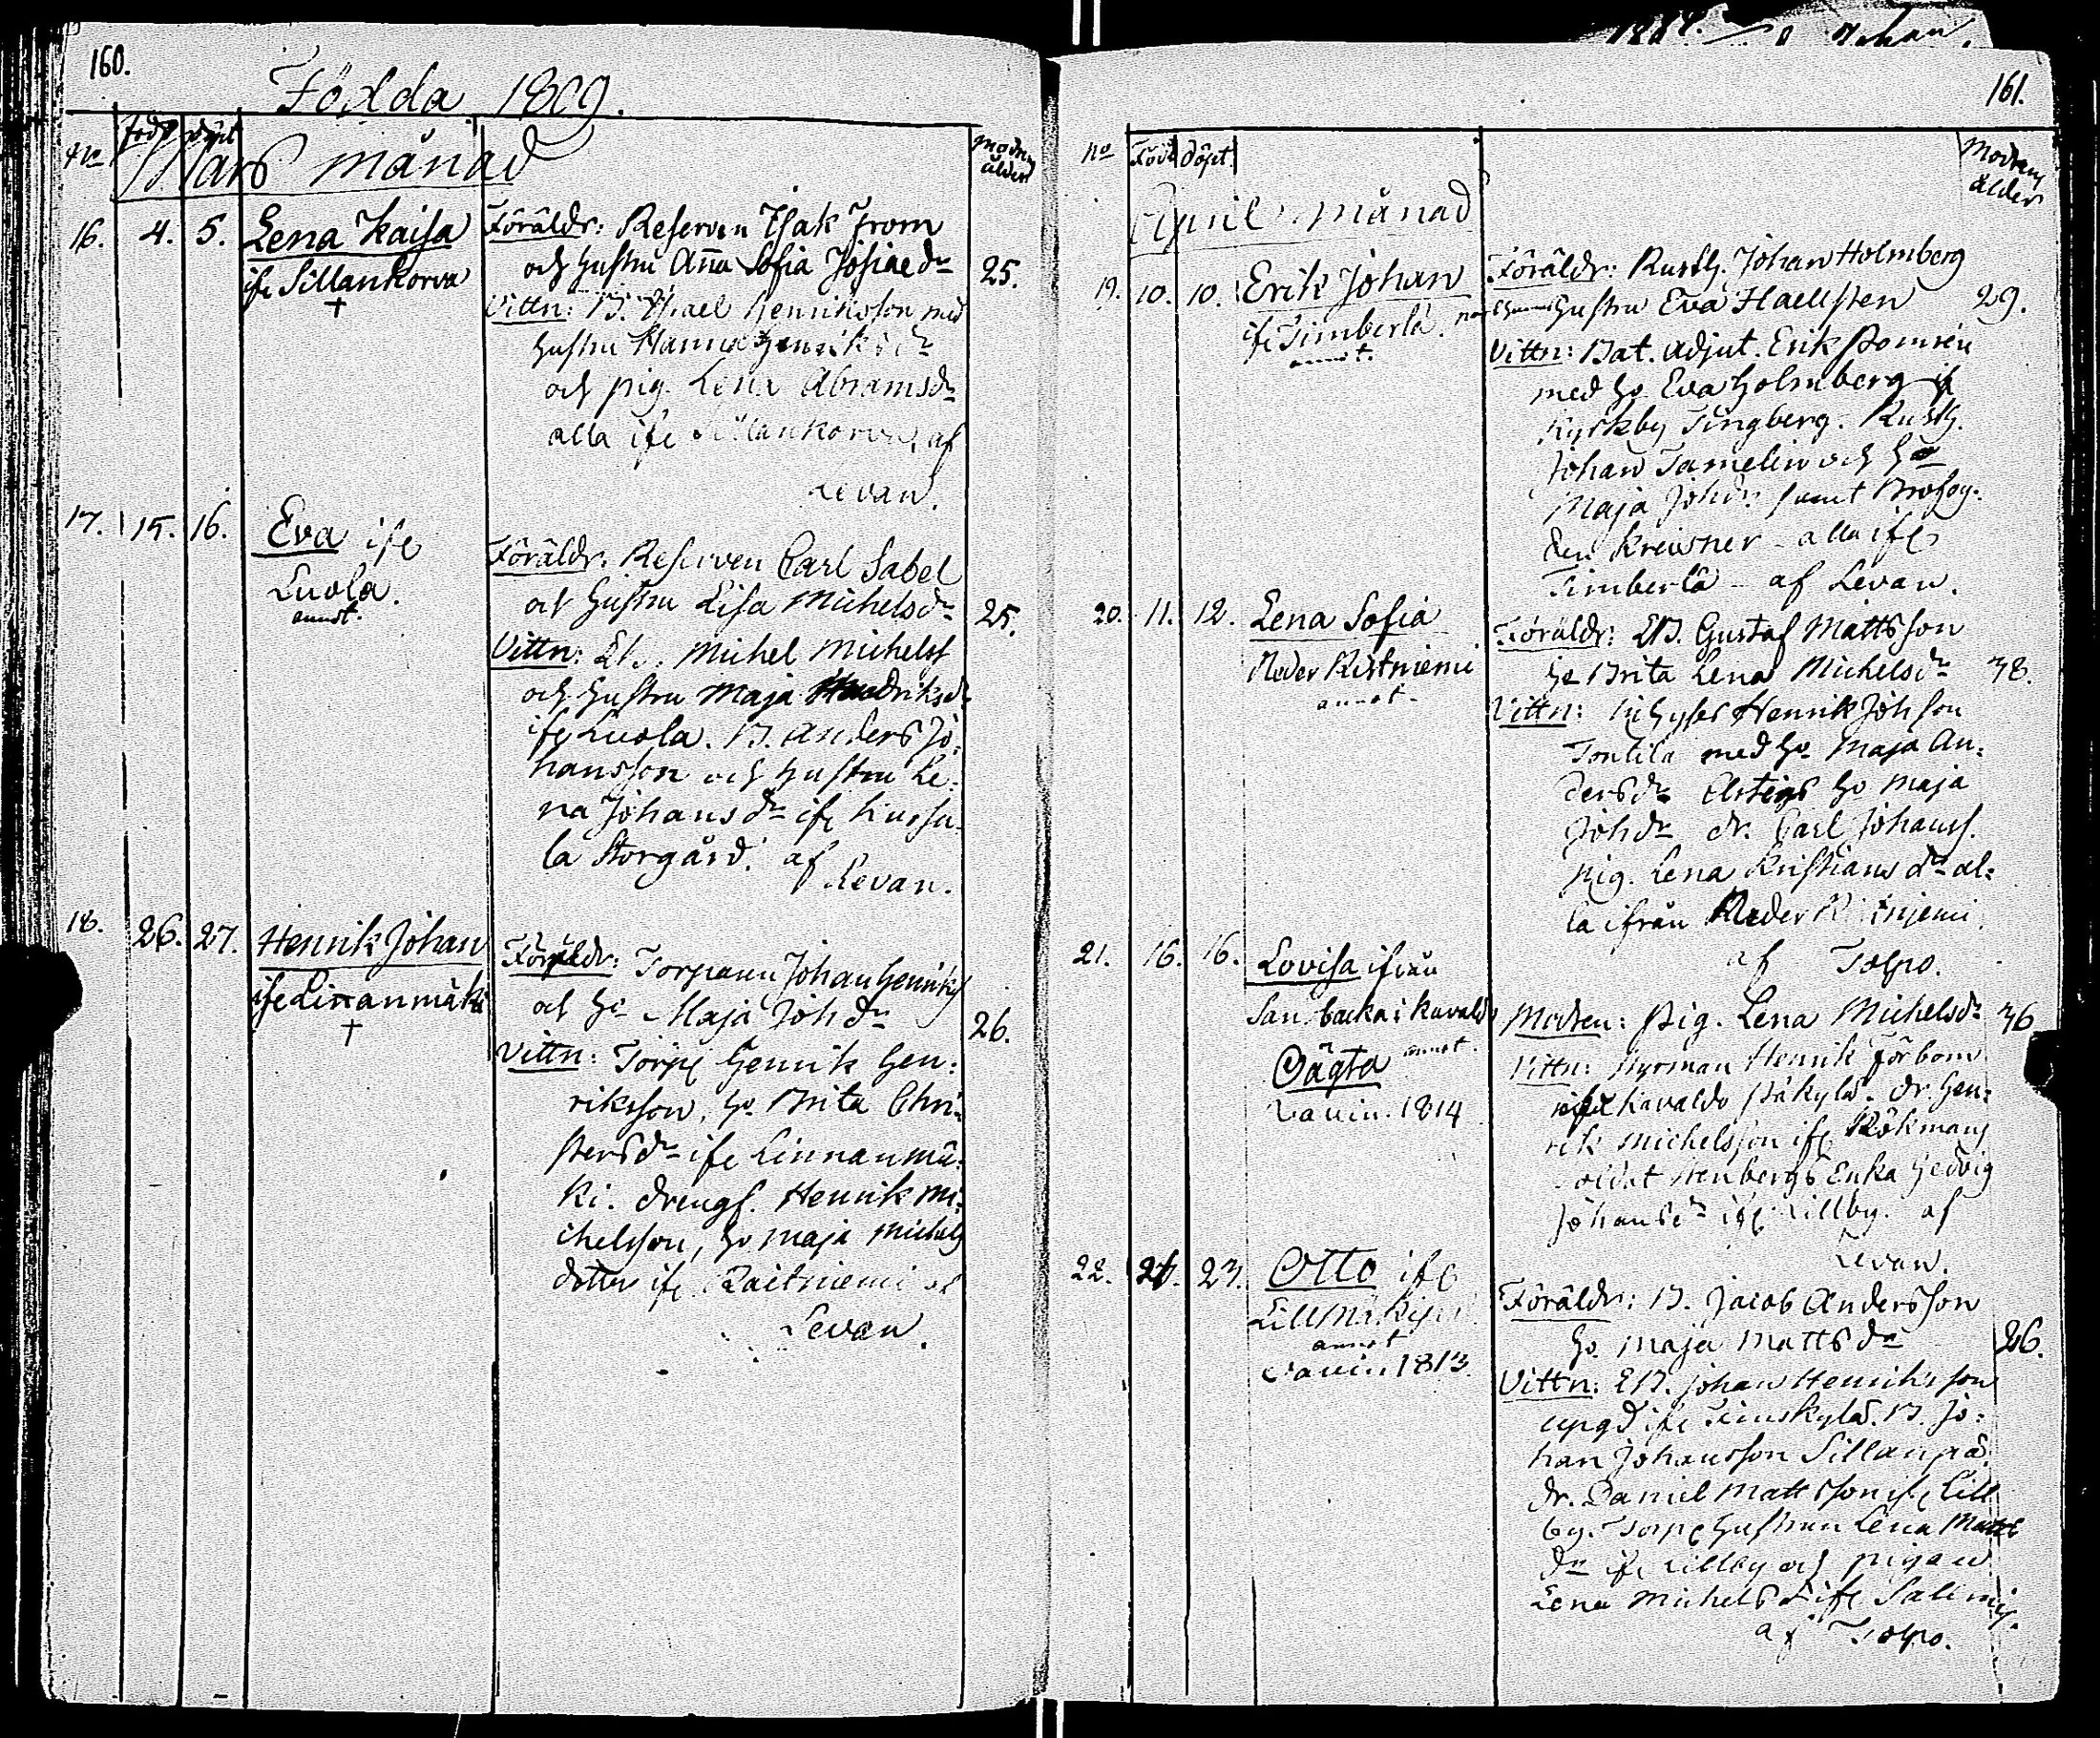 160.
Födda 1809.
No född döpt Modrens ålder
Mars månad
16. 4. 5. Lena Kaisa
ifr Sillankorva
†
Föräldr: Reserven Isak From
och hustru Anna Sofia Josiaedr 25.
Vittn: B. Israel Henriksson med
hustru Hanna Henriksdr
och pig. Lena Abramsdr
alla ifr Sillankorva, af
Levan.
17. 15. 16. Eva ifr
Luola.
annot.
Föräldr: Reserven Carl Sabel
och hustru Lisa Michelsdr 25.
Vittn: Michel Michelss
och hustru Maja Hendriksdr
ifr Luola. B. Anders Jo-
hansson och hustru Le-
na Johansdr ifr
la Storgård. af
Levan.
18. 26. 27. Henrik Johan
ifr Linanmäki
†
Föräldr: Torparen Johan Henrikss
och ho Maja Johdr 26.
Vittn: Torp Henrik Hen-
riksson, ho Brita Chri-
stersdr ifr Linnanmä-
ki. drengs. Henrik Mi-
chelsson, ho Maja Michels
dotter ifr Raitniemi af
Levan.
161.
No Född döpt. Modrens ålder
April månad
19. 10. 10. Erik Johan
ifr Timberla.
annot.
Föräldr: Rusth. Johan Holmberg
hustru Eva Haellsten 29.
Vittn: Bat. Adjut. Erik Pomrén
med ho Eva Holmberg if
Kyrkby Tingberg. Rusth.
Johan Tamelin och ho
Maja Johdr samt Profog-
den Kreisner - alla ifr
Timberla - af Levan.
20. 11. 12. Lena Sofia
Neder Ristniemi
annot.
Föräldr: EB. Gustaf Mattsson
ho Brita Lena Michelsdr 38.
Vittn: Inhyses Henrik Johsson
Tontila med ho Maja An-
dersdr ho Maja
Johdr dr. Carl Johanss.
pig. Lena Kristiansdr al-
la ifrån Neder Ristnjemi
af Tolpo.
21. 16. 16. Lovisa ifrån
Sandbacka i Kavaldo
annot.
Oägta
Vaccin. 1814
Modren: Pig. Lena Michelsdr 36
Vittn: Henrik Förbom
Kavaldo Päkylä. Dr. Hen-
rik Michelsson ifr Rökmans
soldat Stenbergs Enka Hedvig
Johansdr ifr Lillby. af
Levan.
22. 23. Otto ifr
annot
Vaccin 1813.
Föräldr: B. Jacob Andersson
ho. Maja Mattsdr 26.
Vittn: EB. Johan Henriksson
Upgd ifr B. Jo-
han Johansson Sillanpä.
dr. Daniel Mattsson ifr Lill
by. Torp hustrun Lena Matts
dr ifr Lillby och pigan
Lena Michelsdr ifr
af Tolpo.